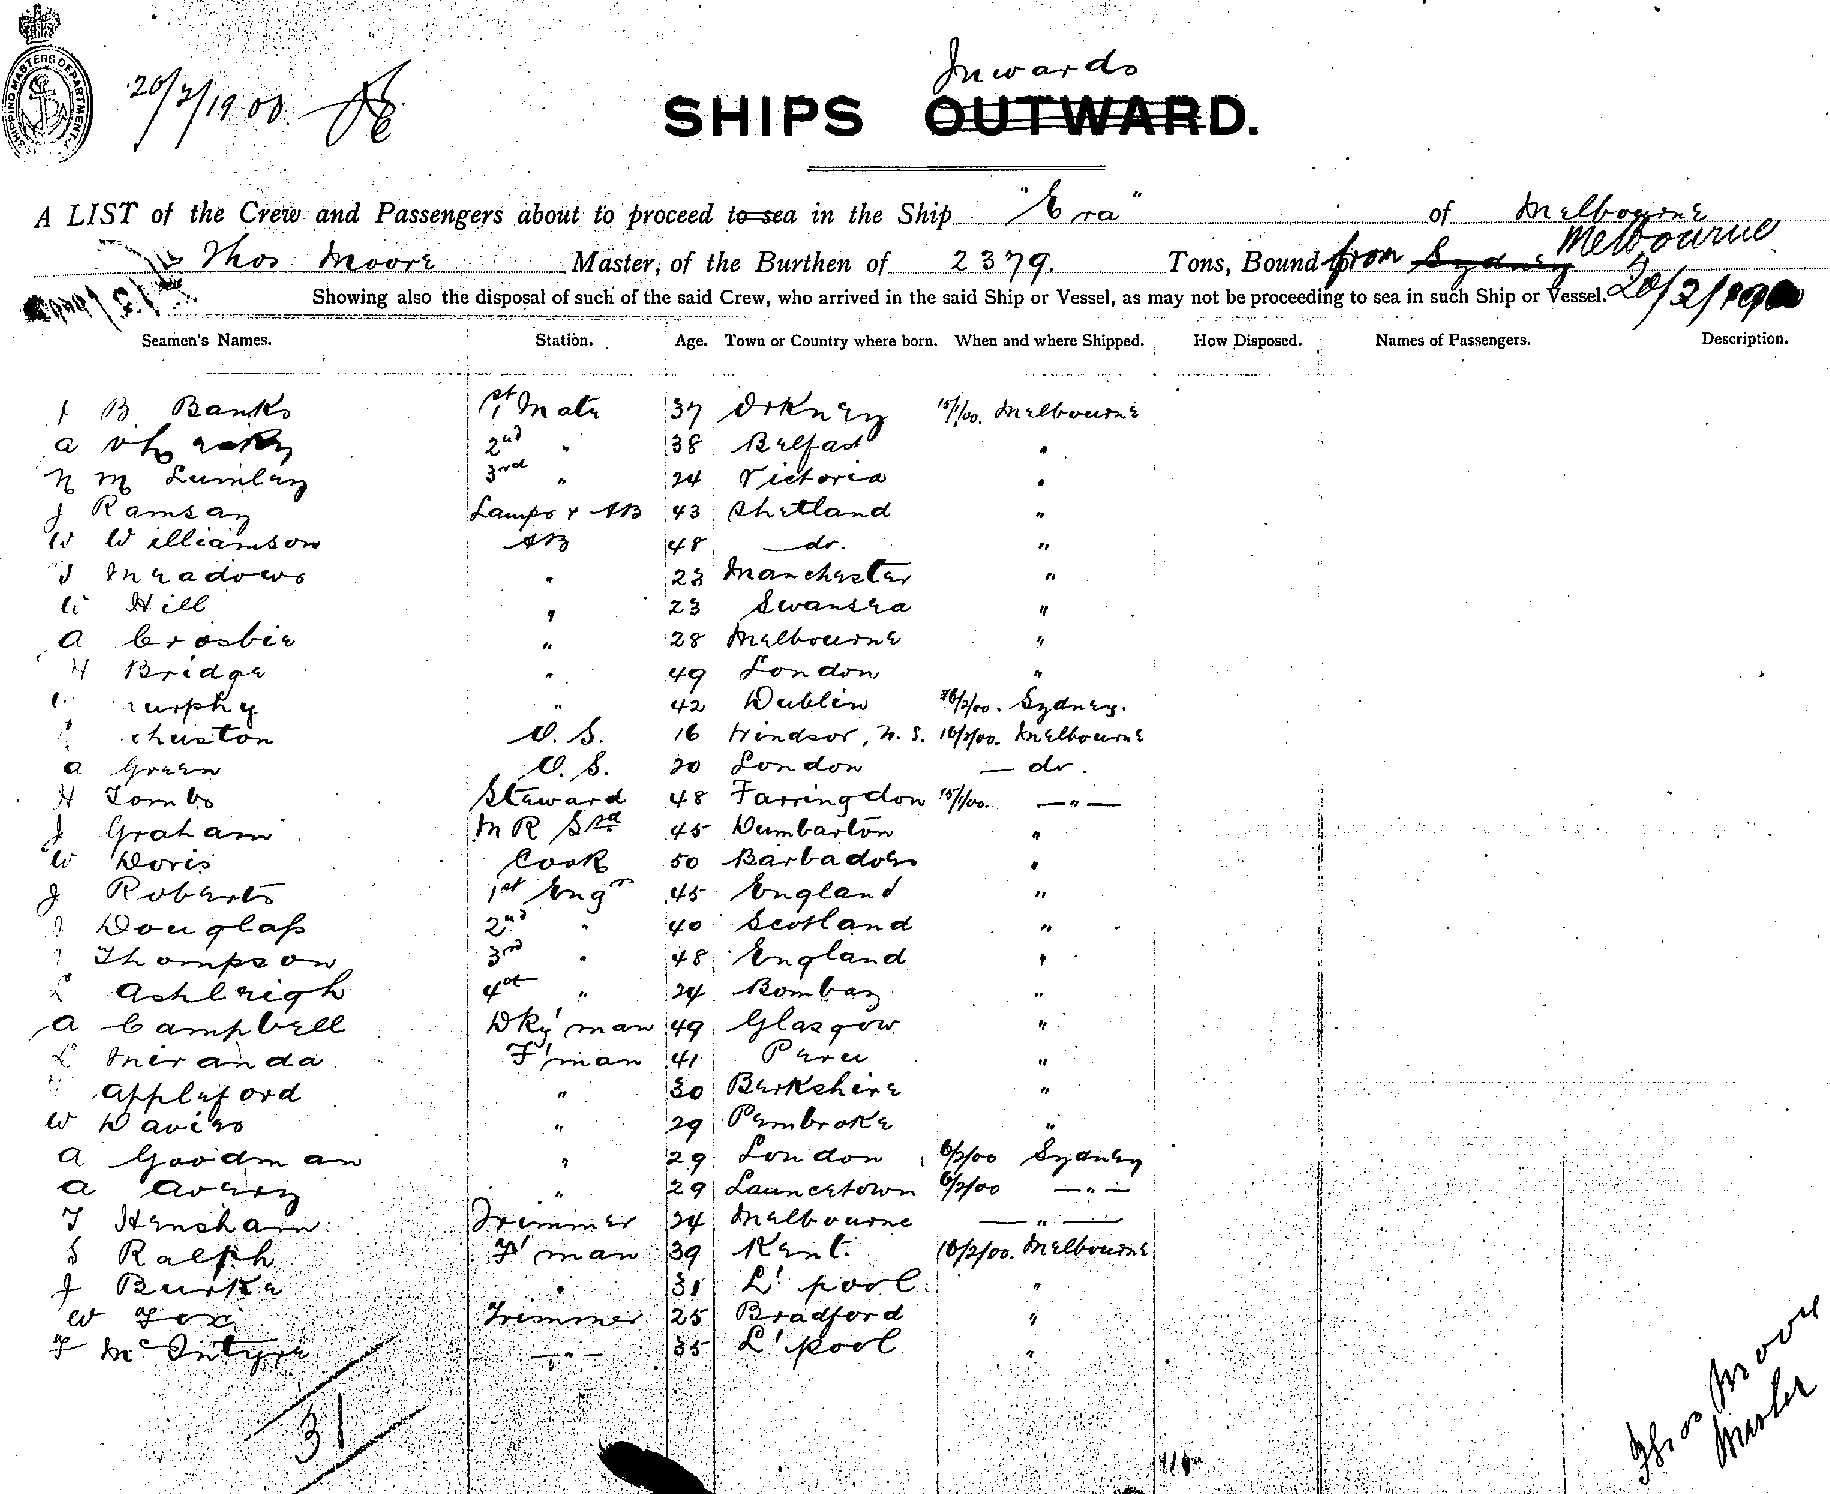 SHIPPING MASTERS DEPARTMENT
20/2/1900
Inwards
SHIPS OUTWARD.
A LIST of the Crew and Passengers about to proceed to sea in the Ship "Era" of Melbourne
Thos Moore Master, of the Burthen of 2379. Tons, Bound from Sydney Melbourne
Showing also the disposal of such of the said Crew, who arrived in the said Ship or Vessel, as may not be proceeding to sea in such Ship or Vessel. 20/2/1900
Seamen's Names. Station. Age. Town or Country where born. When and where Shipped. How Disposed. Names of Passengers. Description.
J B Banks 1st Mate 37 Orkney 15/1/00. Melbourne
a 2nd " 38 Belfast "
N M Lumley 3rd " 24 Victoria "
J Ramsay Lamps & AB 43 Shetland "
W Williamson AB 48 — do. "
J Meadows " 23 Manchester "
W Hill " 23 Swansea "
A Crosbie " 28 Melbourne "
H Bridge " 49 London "
urphy " 42 Dublin /2/00. Sydney.
O. S. 16 Windsor, N. S. 10/2/00. Melbourne
a Green O. S. 20 London — do.
H Tombs Steward 48 Farringdon 15/1/00. — " —
J Graham M R Std 45 Dumbarton "
W Doris Cook 50 Barbadoes "
J Roberts 1st Engr 45 England "
J Douglass 2nd " 40 Scotland "
J Thompson 3rd " 48 England "
L Ashleigh 4th " 24 Bombay "
A Campbell Dky'man 49 Glasgow "
L Miranda F'man 41 Peru "
Appleford " 30 Berkshire "
W Davies " 29 Pembroke "
A Goodman " 29 London 6/2/00 Sydney
A Avery " 29 Launcetown 6/2/00 — " —
T Hensham Trimmer 24 Melbourne — " —
S Ralph F'man 39 Kent. 10/2/00. Melbourne
J Burke " 31 L'pool "
W Fox Trimmer 25 Bradford "
F McIntyre — " — 35 L'pool "
31
Thos Moore
Master